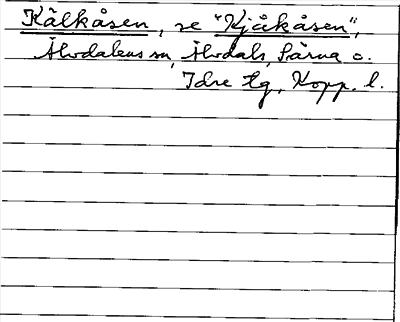 Kälkåsen, se "Kjåkåsen",
Älvdalens sn, Älvdals, Särna o.
Idre tg, Kopp. l.